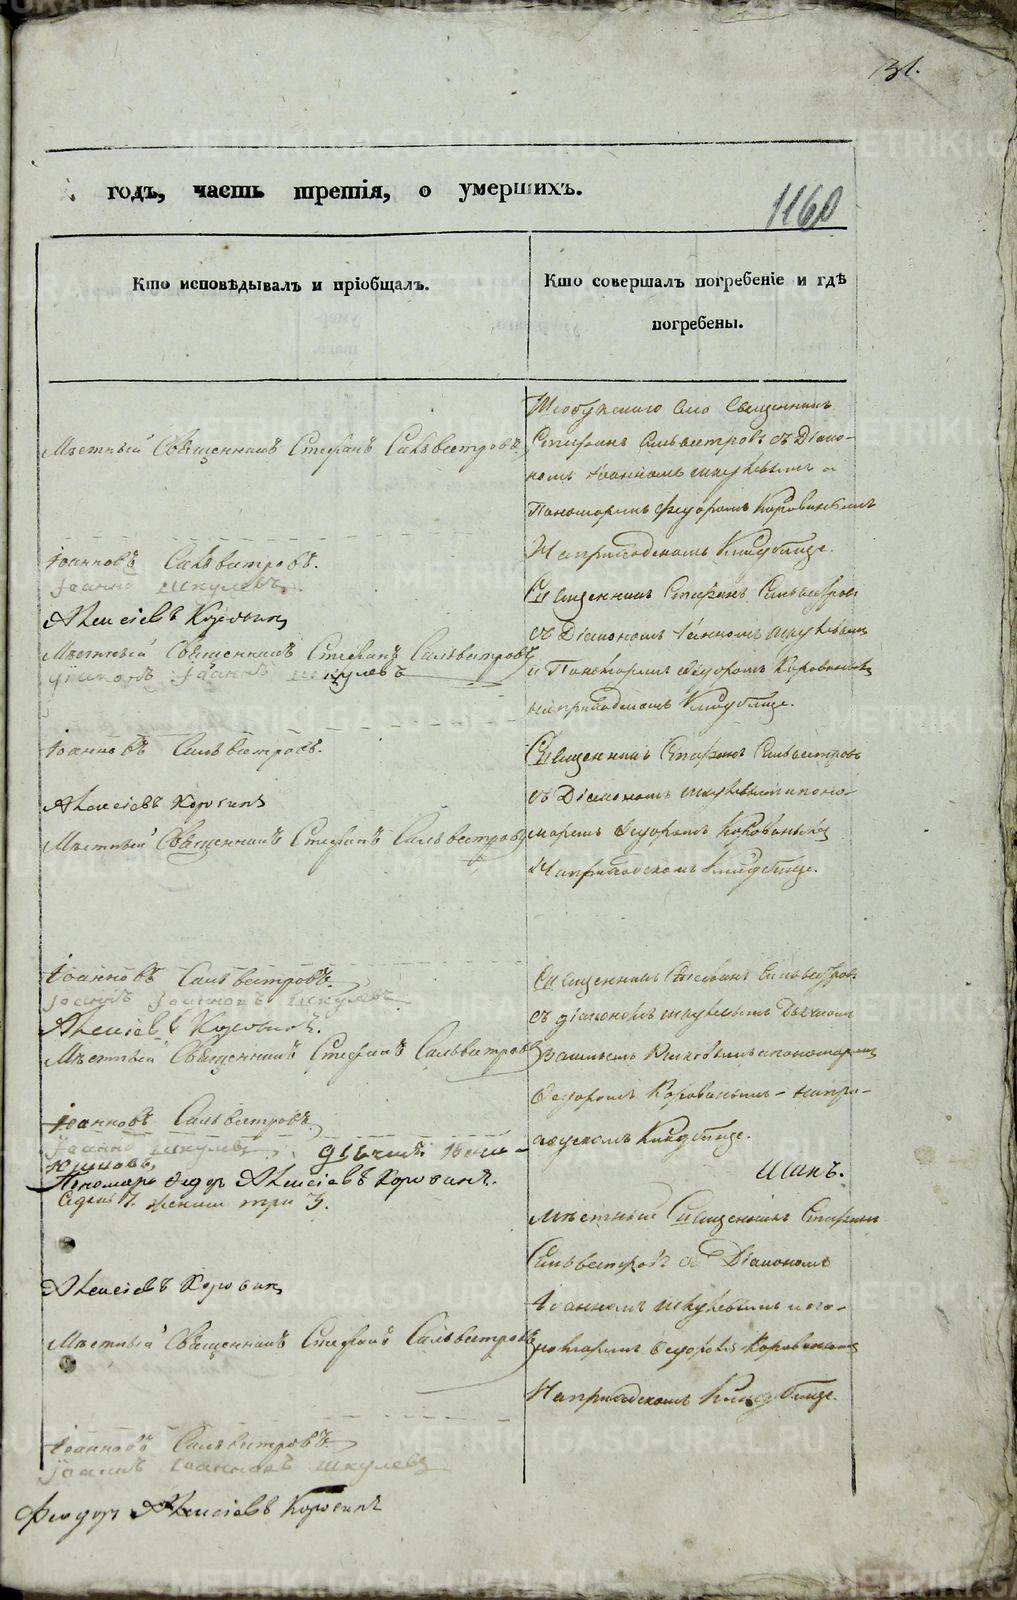 131.
годъ, часть третія, о умершихъ.
1160
Кто исповѣдывалъ и пріобщалъ.
Кто совершалъ погребеніе и гдѣ
погребены.
Мѣстный Священникъ Стефанъ Сильвестровъ
Іоанновъ Сильвестровъ.
Іоаннъ Шкулевъ
Алексіевъ Коровинъ
Мѣстный Священникъ Стефанъ Сильвестровъ
Діаконъ Іоаннъ Шкулевъ
Іоанновъ Сильвестровъ.
Алексіевъ Коровинъ
Мѣстный Священникъ Стефанъ Сильвестровъ
Іоанновъ Сильвестровъ.
Іоаннъ Іоанновъ Шкулевъ
Алексіевъ Коровинъ.
Мѣстный Священникъ Стефанъ Сильвестровъ
Іоанновъ Сильвестровъ.
Іоаннъ Шкулевъ, дьячекъ
Пономарь Федоръ Алексіевъ Коровинъ.
три 3.
Алексіевъ Коровинъ
Мѣстный Священникъ Стефанъ Сильвестровъ
Іоанновъ Сильвестровъ
Іоаннъ Іоанновъ Шкулевъ
Феодоръ Алексіевъ Коровинъ
Священникъ
Стефанъ Сильвестровъ съ Діако-
номъ Іоанномъ Шкулевымъ и
Пономаремъ Федоромъ Коровинымъ
На приходскомъ Кладбище.
Священникъ Стефанъ Сильвестровъ
съ Діакономъ Іоанномъ Шкулевымъ
и Пономаремъ Федоромъ Коровинымъ
на приходскомъ Кладбище.
Священникъ Стефанъ Сильвестровъ
съ Діакономъ Шкулевымъ и поно-
маремъ Федоромъ Коровинымъ
На приходскомъ Кладбище.
Священникъ Стефанъ Сильвестровъ
съ діакономъ Шкулевымъ Дьячкомъ
и пономаремъ
Федоромъ Коровинымъ - на при-
ходскомъ Кладбище.
Мѣстный Священникъ Стефанъ
Сильвестровъ съ Діакономъ
Іоанномъ Шкулевымъ и по-
номаремъ Федоромъ Коровинымъ
На приходскомъ Кладбище.
METRIKI.GASO-URAL.RU